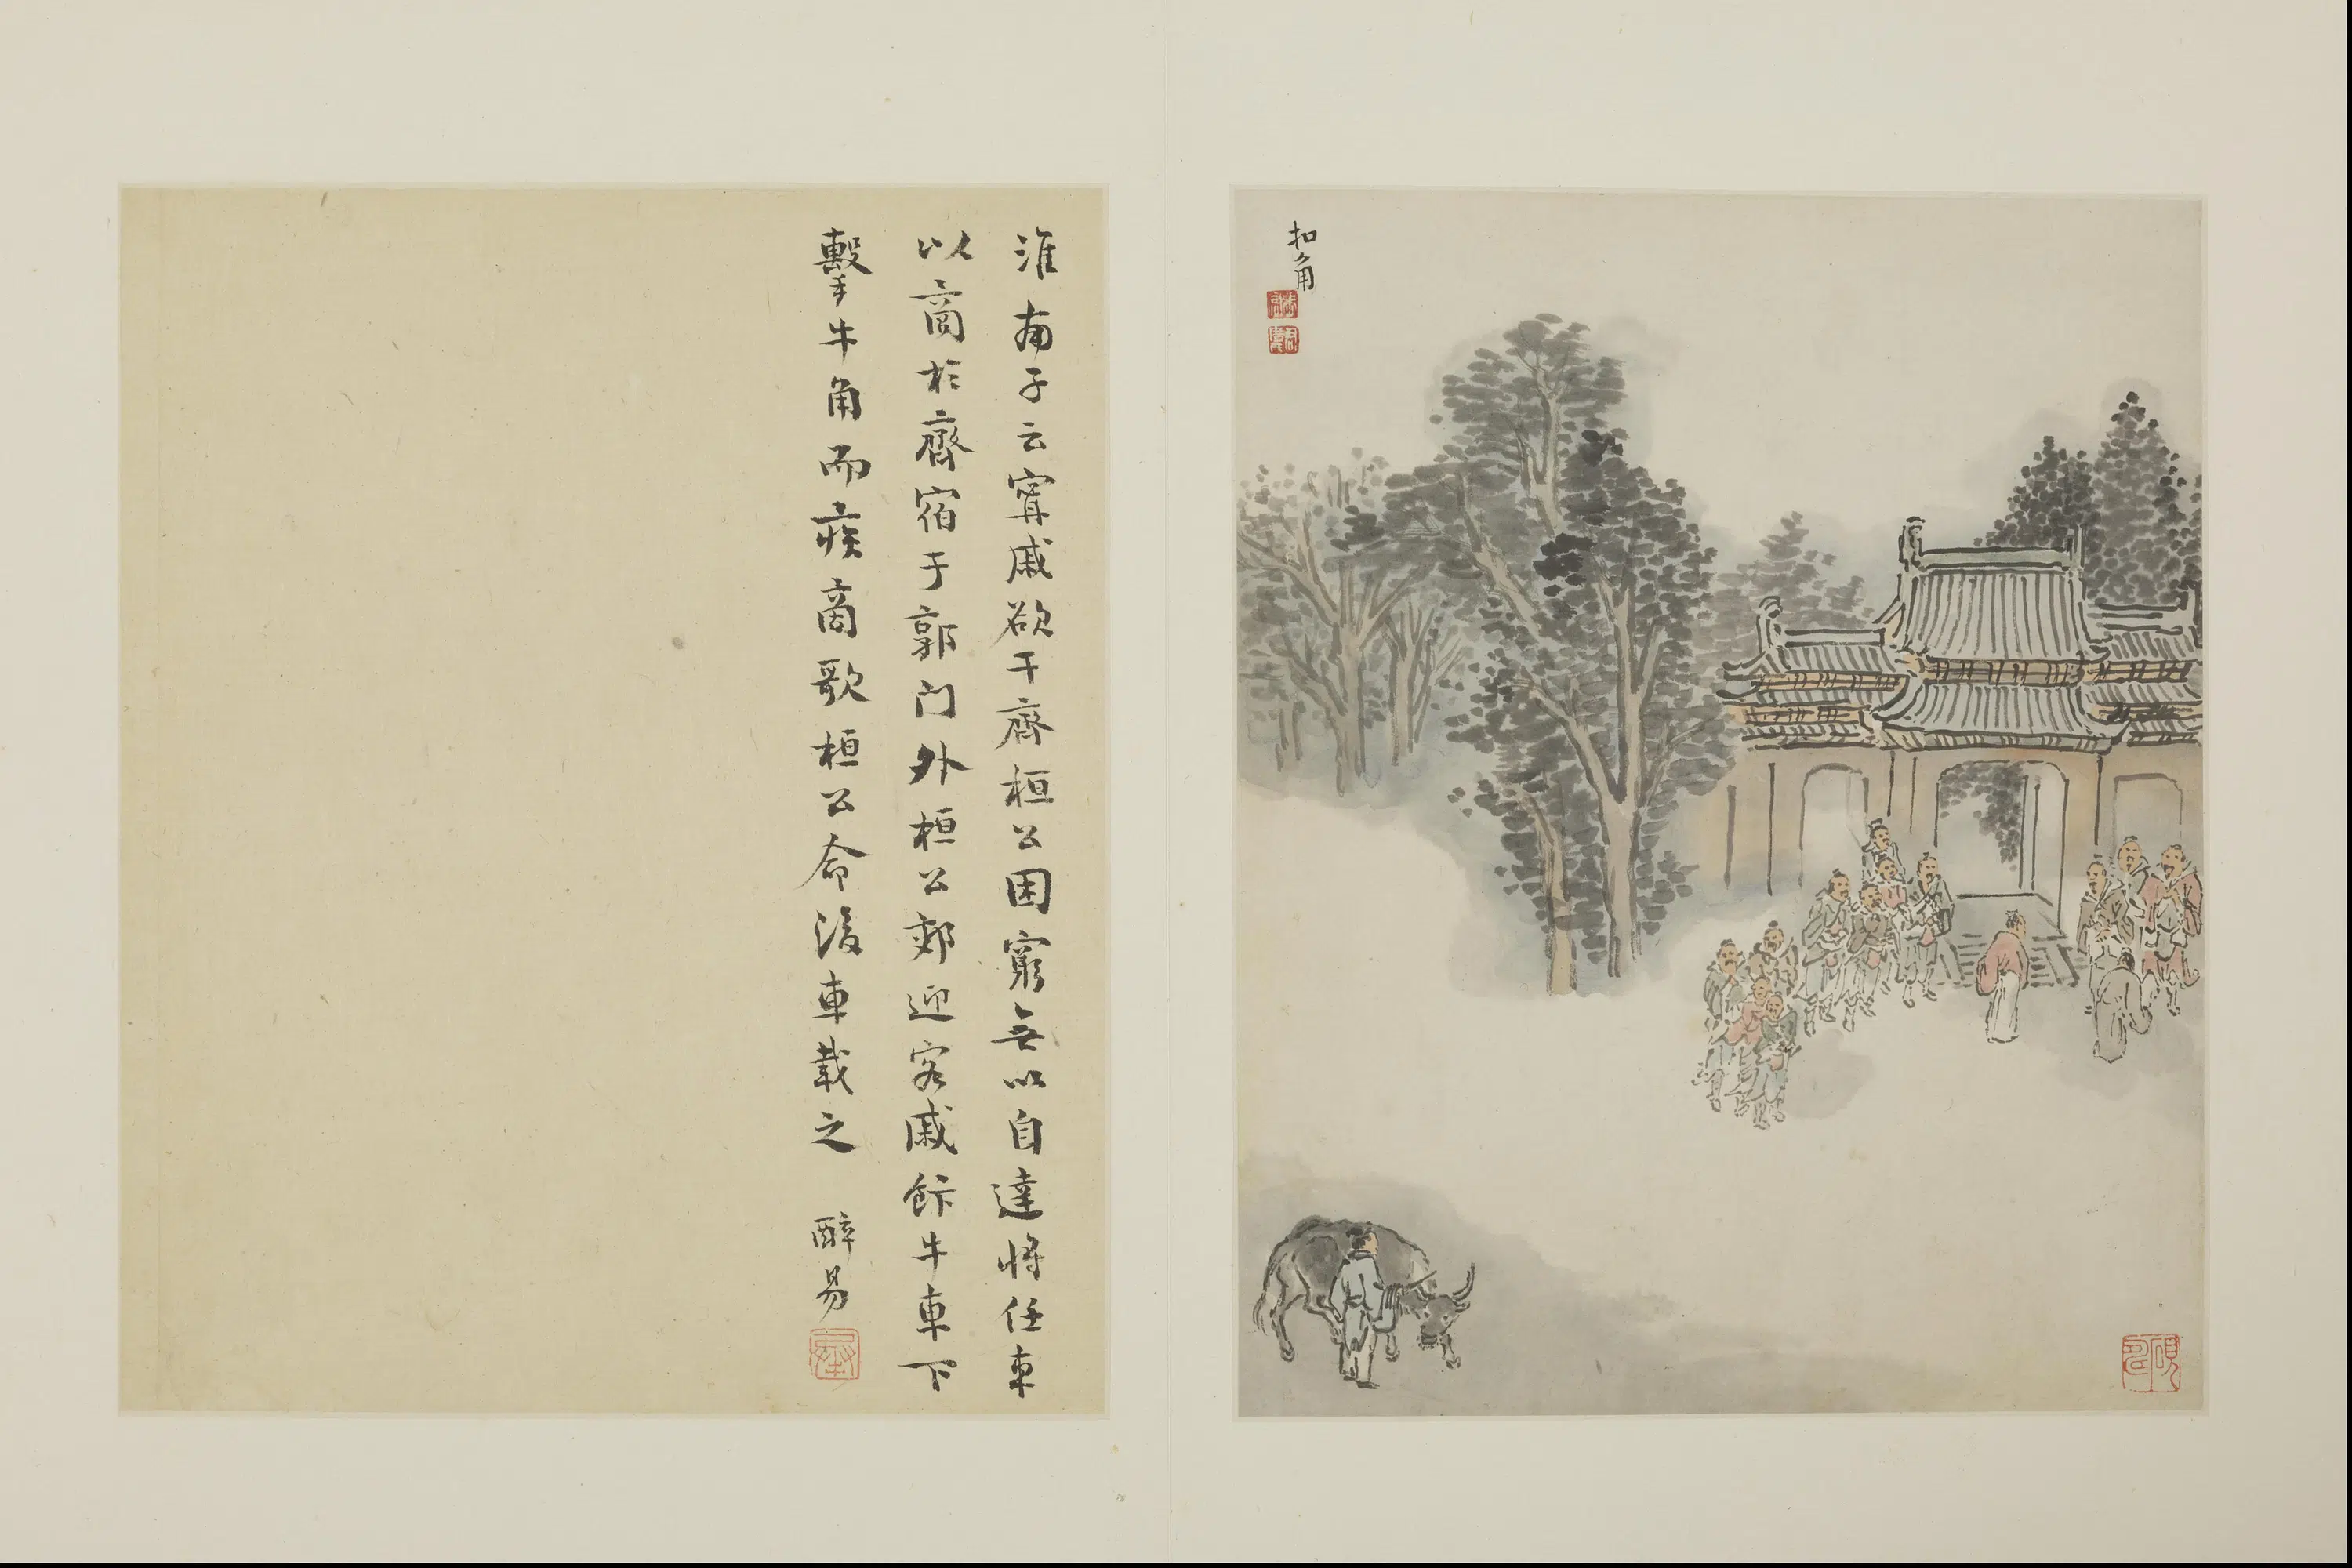 扣角
淮南子云甯戚欲干齊桓公困窮無以自達將任車
以商於齊宿于郭门外桓公郊迎客戚飯牛車下
擊牛角而疾商歌桓公命後車載之 醉易